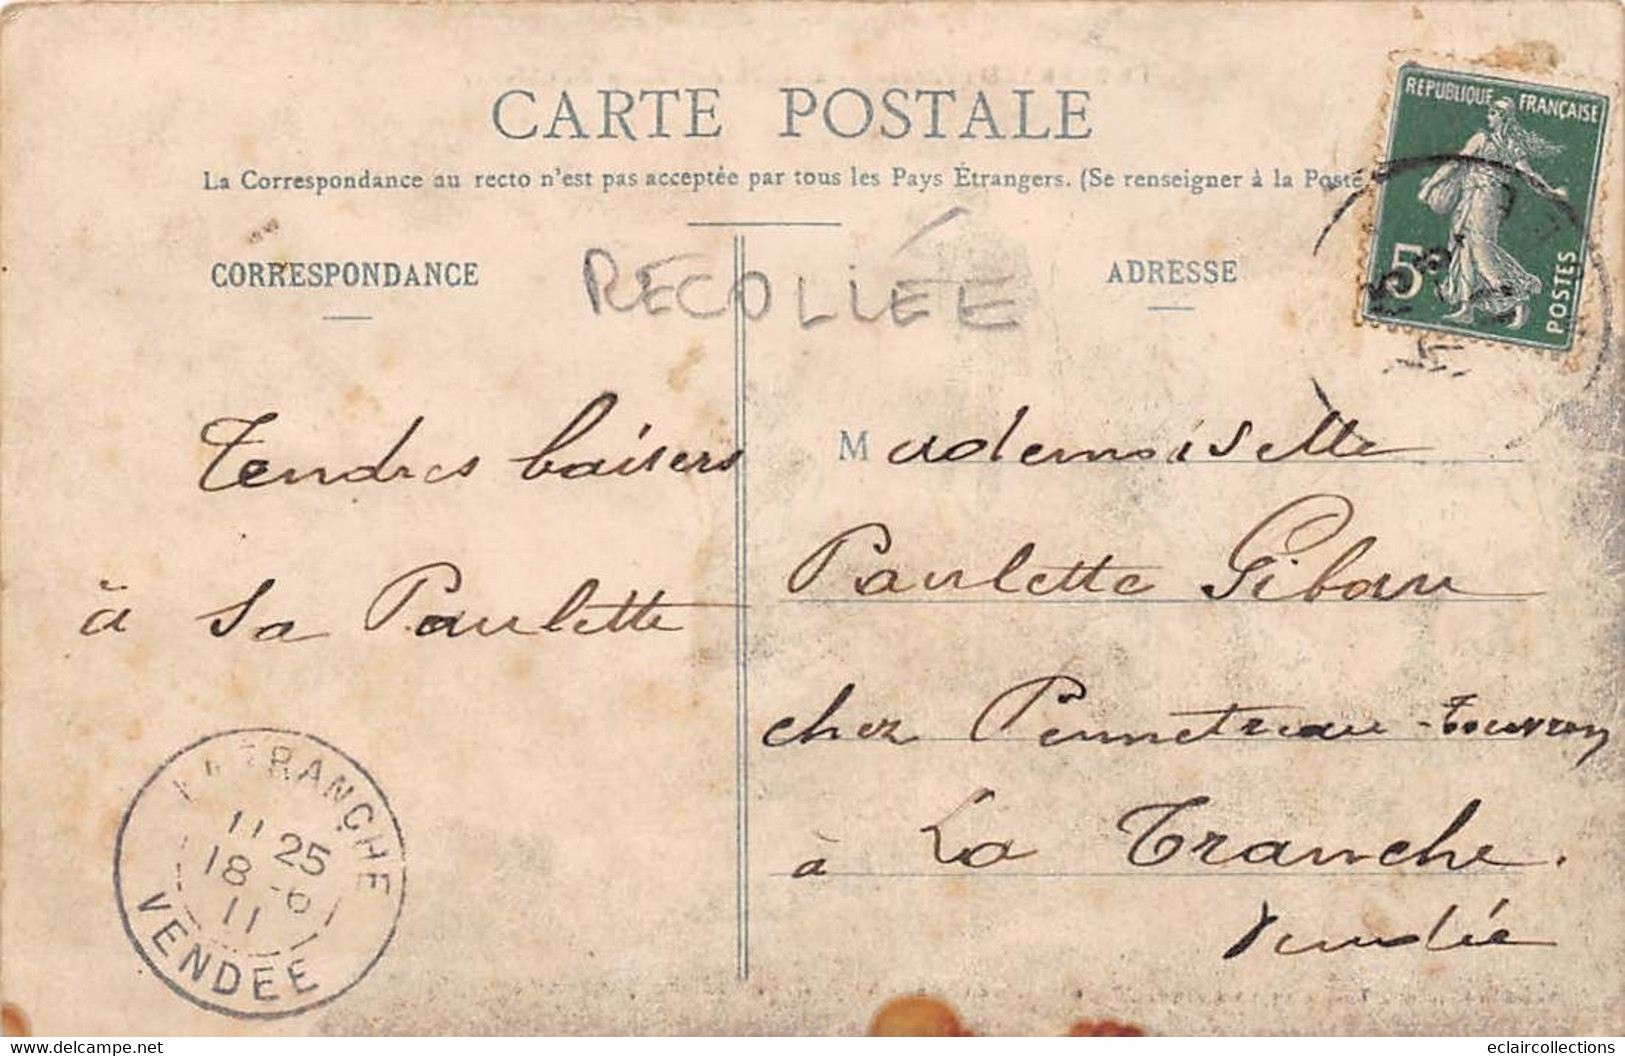 CARTE POSTALE
La Correspondance au recto n'est pas acceptée par tous les Pays Étrangers. (Se renseigner à la Poste
CORRESPONDANCE
RECOLLÉE
ADRESSE
REPUBLIQUE FRANÇAISE
5c
POSTES
Tendres baisers
à Sa Paulette
Mademoiselle
Paulette Gibau
chez Pennetreau-Touvron
à La Tranche.
Vendée
LA TRANCHE
11 25
18 - 6
11
VENDEE
https://www.delcampe.net
eclaircollections